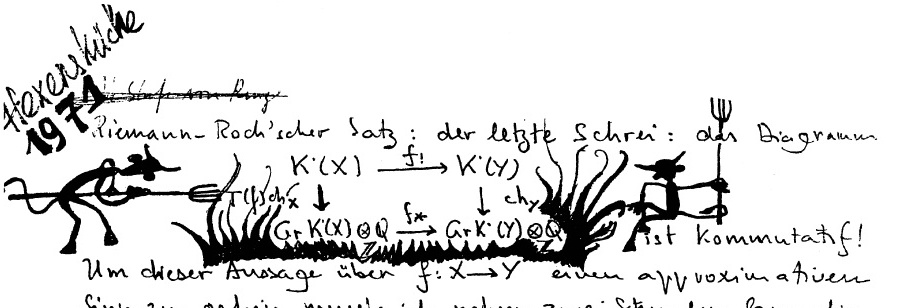 Hexenküche
1971
Riemann-Roch'scher Satz: der letzte Schrei: das Diagramm
K·(X) f! K·(Y)
T(f)chX chY
Gr K·(X) ⊗ Q f* Gr K·(Y) ⊗ Q
Z Z
ist kommutatif!
Um dieser Aussage über f: X → Y einen approximativen